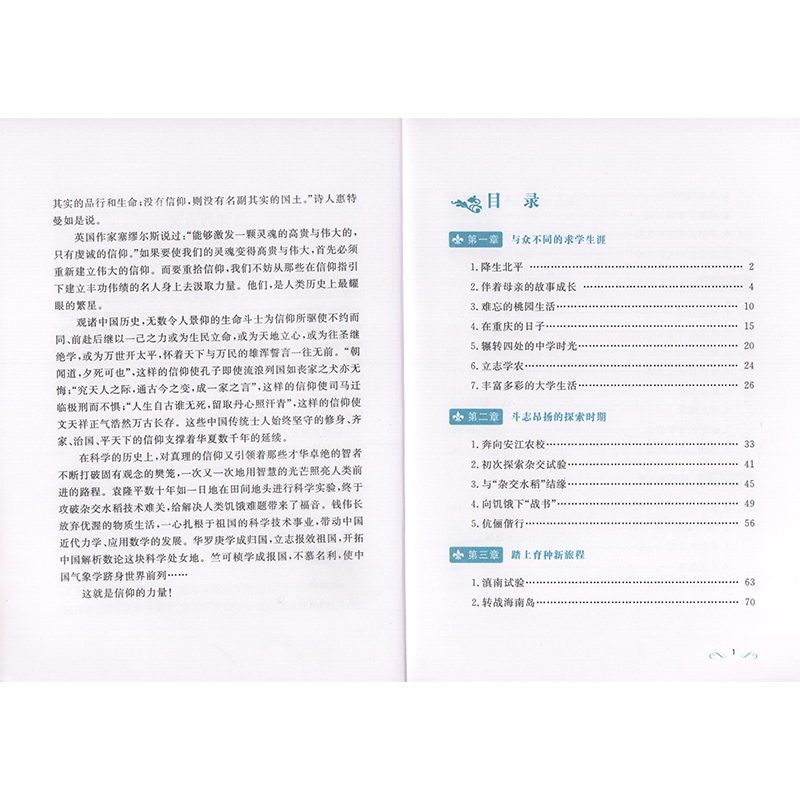 其实的品行和生命;没有信仰,则没有名副其实的国土。”诗人惠特
曼如是说。
英国作家塞缪尔斯说过:“能够激发一颗灵魂的高贵与伟大的,
只有虔诚的信仰。”如果要使我们的灵魂变得高贵与伟大,首先必须
重新建立伟大的信仰。而要重拾信仰,我们不妨从那些在信仰指引
下建立丰功伟绩的名人身上去汲取力量。他们,是人类历史上最耀
眼的繁星。
观诸中国历史,无数令人景仰的生命斗士为信仰所驱使不约而
同、前赴后继以一己之力或为生民立命,或为天地立心,或为往圣继
绝学,或为万世开太平,怀着天下与万民的雄浑誓言一往无前。“朝
闻道,夕死可也”,这样的信仰使孔子即使流浪列国如丧家之犬亦无
悔;“究天人之际,通古今之变,成一家之言”,这样的信仰使司马迁
临极刑而不惧;“人生自古谁无死,留取丹心照汗青”,这样的信仰使
文天祥正气浩然万古长存。这些中国传统士人始终坚守的修身、齐
家、治国、平天下的信仰支撑着华夏数千年的延续。
在科学的历史上,对真理的信仰又引领着那些才华卓绝的智者
不断打破固有观念的樊笼,一次又一次地用智慧的光芒照亮人类前
进的路程。袁隆平数十年如一日地在田间地头进行科学实验,终于
攻破杂交水稻技术难关,给解决人类饥饿难题带来了福音。钱伟长
放弃优渥的物质生活,一心扎根于祖国的科学技术事业,带动中国
近代力学、应用数学的发展。华罗庚学成归国,立志报效祖国,开拓
中国解析数论这块科学处女地。竺可桢学成报国,不慕名利,使中
国气象学跻身世界前列……
这就是信仰的力量!
目 录
第一章 与众不同的求学生涯
1.降生北平 …… 2
2.伴着母亲的故事成长 …… 4
3.难忘的桃园生活 …… 10
4.在重庆的日子 …… 15
5.辗转四处的中学时光 …… 20
6.立志学农 …… 24
7.丰富多彩的大学生活 …… 26
第二章 斗志昂扬的探索时期
1.奔向安江农校 …… 33
2.初次探索杂交试验 …… 41
3.与“杂交水稻”结缘 …… 45
4.向饥饿下“战书” …… 49
5.伉俪偕行 …… 56
第三章 踏上育种新旅程
1.滇南试验 …… 63
2.转战海南岛 …… 70
1